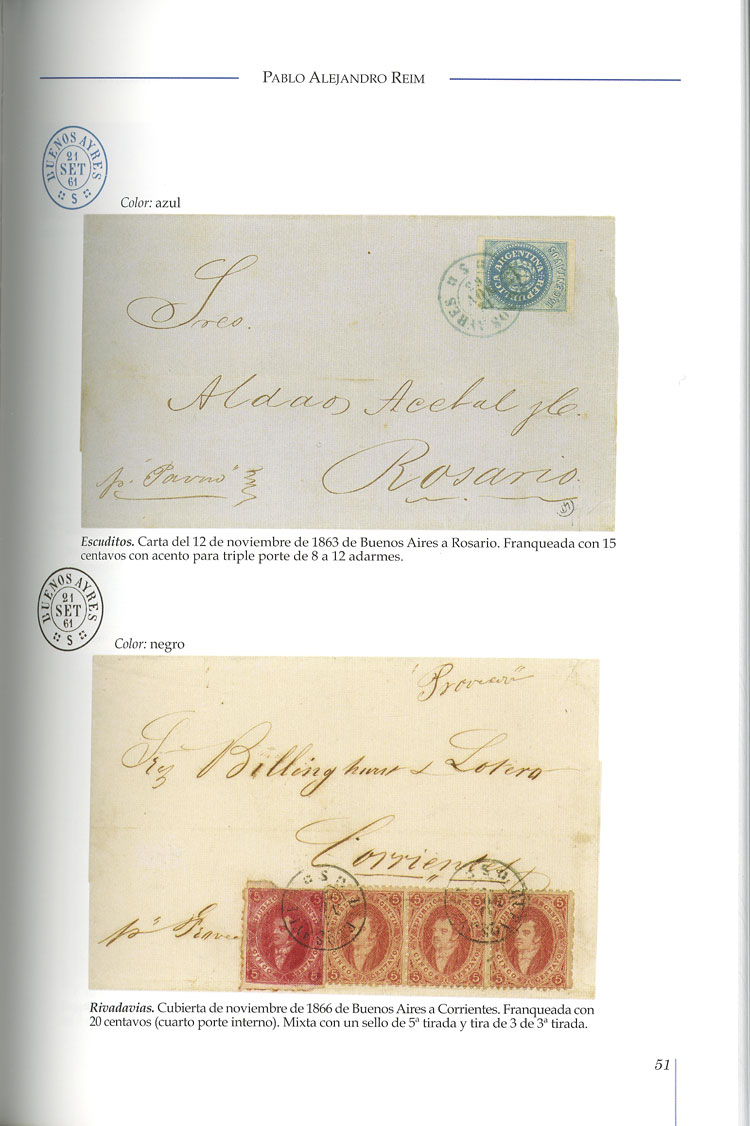 PABLO ALEJANDRO REIM
BUENOS AYRES
21
SET
61
S
Color: azul
REPUBLICA ARGENTINA
Sres.
Aldao Acebal
Rosario
Escuditos. Carta del 12 de noviembre de 1863 de Buenos Aires a Rosario. Franqueada con 15
centavos con acento para triple porte de 8 a 12 adarmes.
BUENOS AYRES
21
SET
61
S
Color: negro
Billinghurst
Corrientes
5 5 5 5
5 5 5 5
Rivadavias. Cubierta de noviembre de 1866 de Buenos Aires a Corrientes. Franqueada con
20 centavos (cuarto porte interno). Mixta con un sello de 5ª tirada y tira de 3 de 3ª tirada.
51